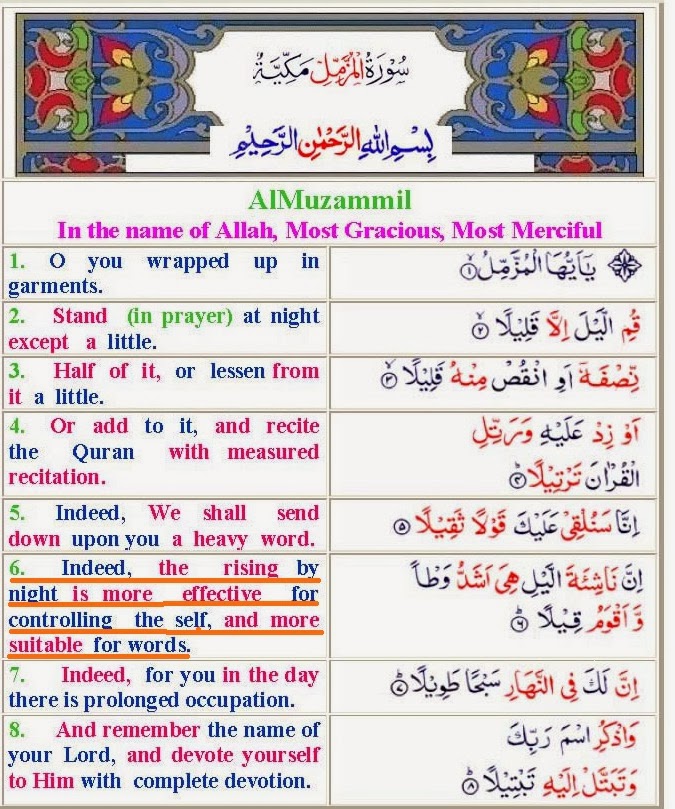 سُوۡرَةُ الۡمُزَّمِّلِ مَكِّيَّةٌ
بِسۡمِ اللهِ الرَّحۡمٰنِ الرَّحِيۡمِ
AlMuzammil
In the name of Allah, Most Gracious, Most Merciful
1. O you wrapped up in
garments.
يٰۤاَيُّهَا الۡمُزَّمِّلُ ۙ‏ ﴿۱﴾
2. Stand (in prayer) at night
except a little.
قُمِ الَّيۡلَ اِلَّا قَلِيۡلًا ۙ‏ ﴿۲﴾
3. Half of it, or lessen from
it a little.
نِّصۡفَهٗۤ اَوِ انْقُصۡ مِنۡهُ قَلِيۡلًا ۙ‏ ﴿۳﴾
4. Or add to it, and recite
the Quran with measured
recitation.
اَوۡ زِدۡ عَلَيۡهِ وَرَتِّلِ
الۡقُرۡاٰنَ تَرۡتِيۡلًا ؕ‏ ﴿۴﴾
5. Indeed, We shall send
down upon you a heavy word.
اِنَّا سَنُلۡقِىۡ عَلَيۡكَ قَوۡلًا ثَقِيۡلًا ﴿۵﴾
6. Indeed, the rising by
night is more effective for
controlling the self, and more
suitable for words.
اِنَّ نَاشِئَةَ الَّيۡلِ هِىَ اَشَدُّ وَطۡاً
وَّاَقۡوَمُ قِيۡلًا ؕ‏ ﴿۶﴾
7. Indeed, for you in the day
there is prolonged occupation.
اِنَّ لَكَ فِى النَّهَارِ سَبۡحًا طَوِيۡلًا ؕ‏ ﴿۷﴾
8. And remember the name of
your Lord, and devote yourself
to Him with complete devotion.
وَاذۡكُرِ اسۡمَ رَبِّكَ
وَتَبَتَّلۡ اِلَيۡهِ تَبۡتِيۡلًا ؕ‏ ﴿۸﴾